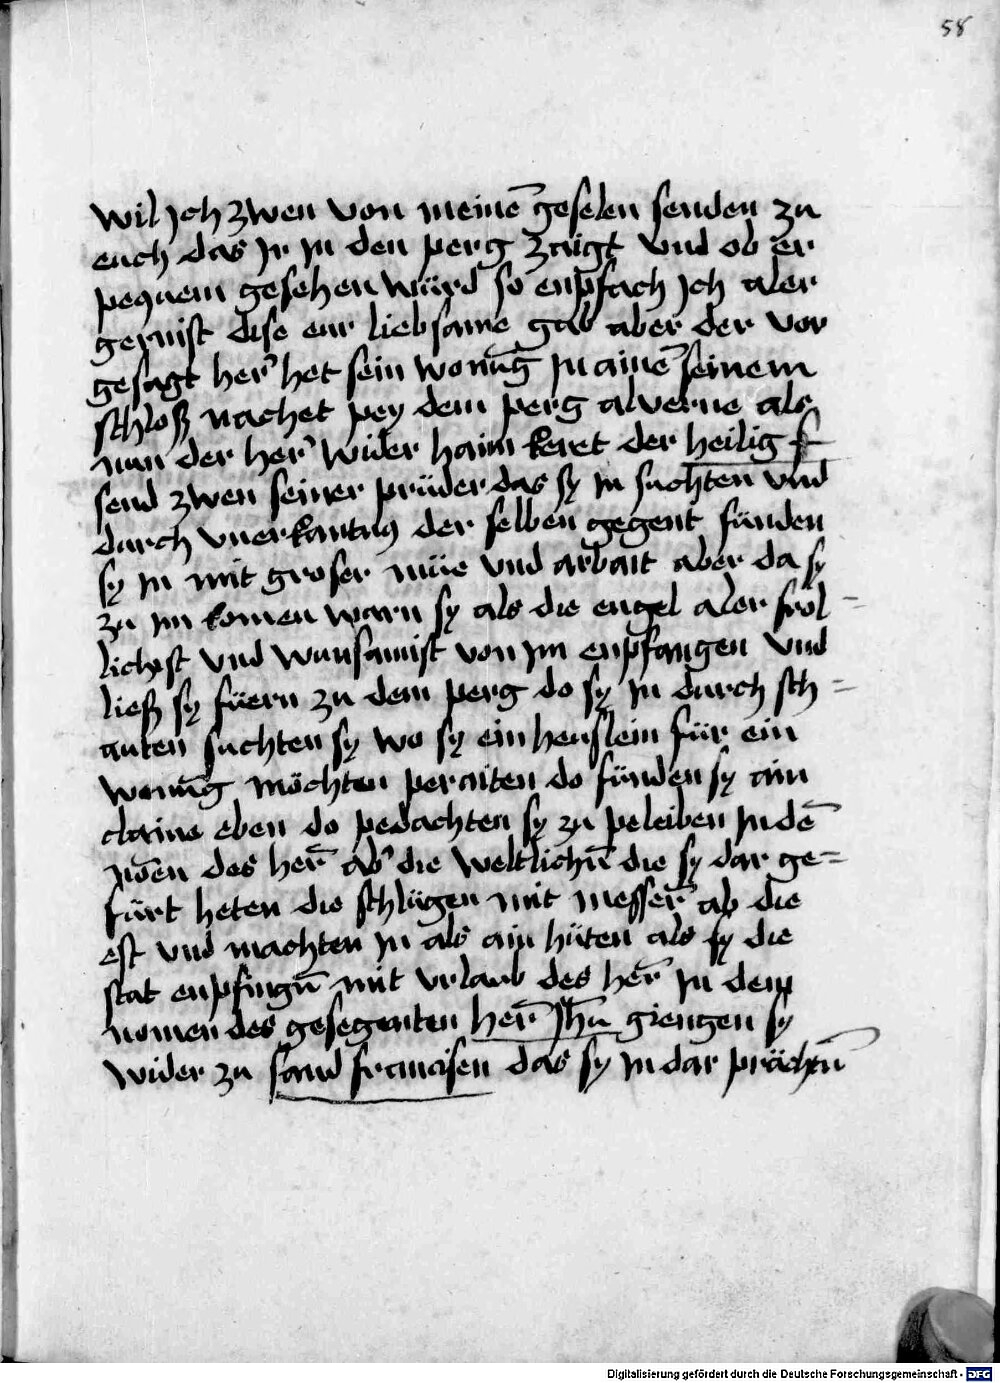 58
wil jch zwen von meinē geselen senden zu
euch das jr jn den perg zaigt vnd ob er
pequem gesehen würd so enpfach jch aler
gernist dise eur liebsame gab aber der vor
gesagt her het sein wonūg jn ainē seinem
schloß nachet pey dem perg alverne als
nun der her wider haim keret der heilig f
send zwen seiner prüder das sy jn suchten vnd
durch vnerkantnus der selben gegent fünden
sy jn mit groser müe vnd arbait aber da sy
zu jm komen warn sy als die engel aler fröl =
lichest vnd wunsamist von jm enpfangen vnd
ließ sy füern zu dem perg do sy jn durch sch =
auten suchten sy wo sy ein heuslein für ein
wonūg möchten peraiten do fünden sy ain
claine eben do pedachten sy zu peleiben jn dē
des her̄ ab die weltlichē die sy dar ge=
fürt heten die schlügen mit messer ab die
est vnd machten jn als ain hüten als sy die
stat enpfingū mit vrlaub des her̄ jn dem
nomen des gesegenten her̄ Jhū giengen sy
wider zu sand francisen das sy jn dar prächtū
Digitalisierung gefördert durch die Deutsche Forschungsgemeinschaft - DFG